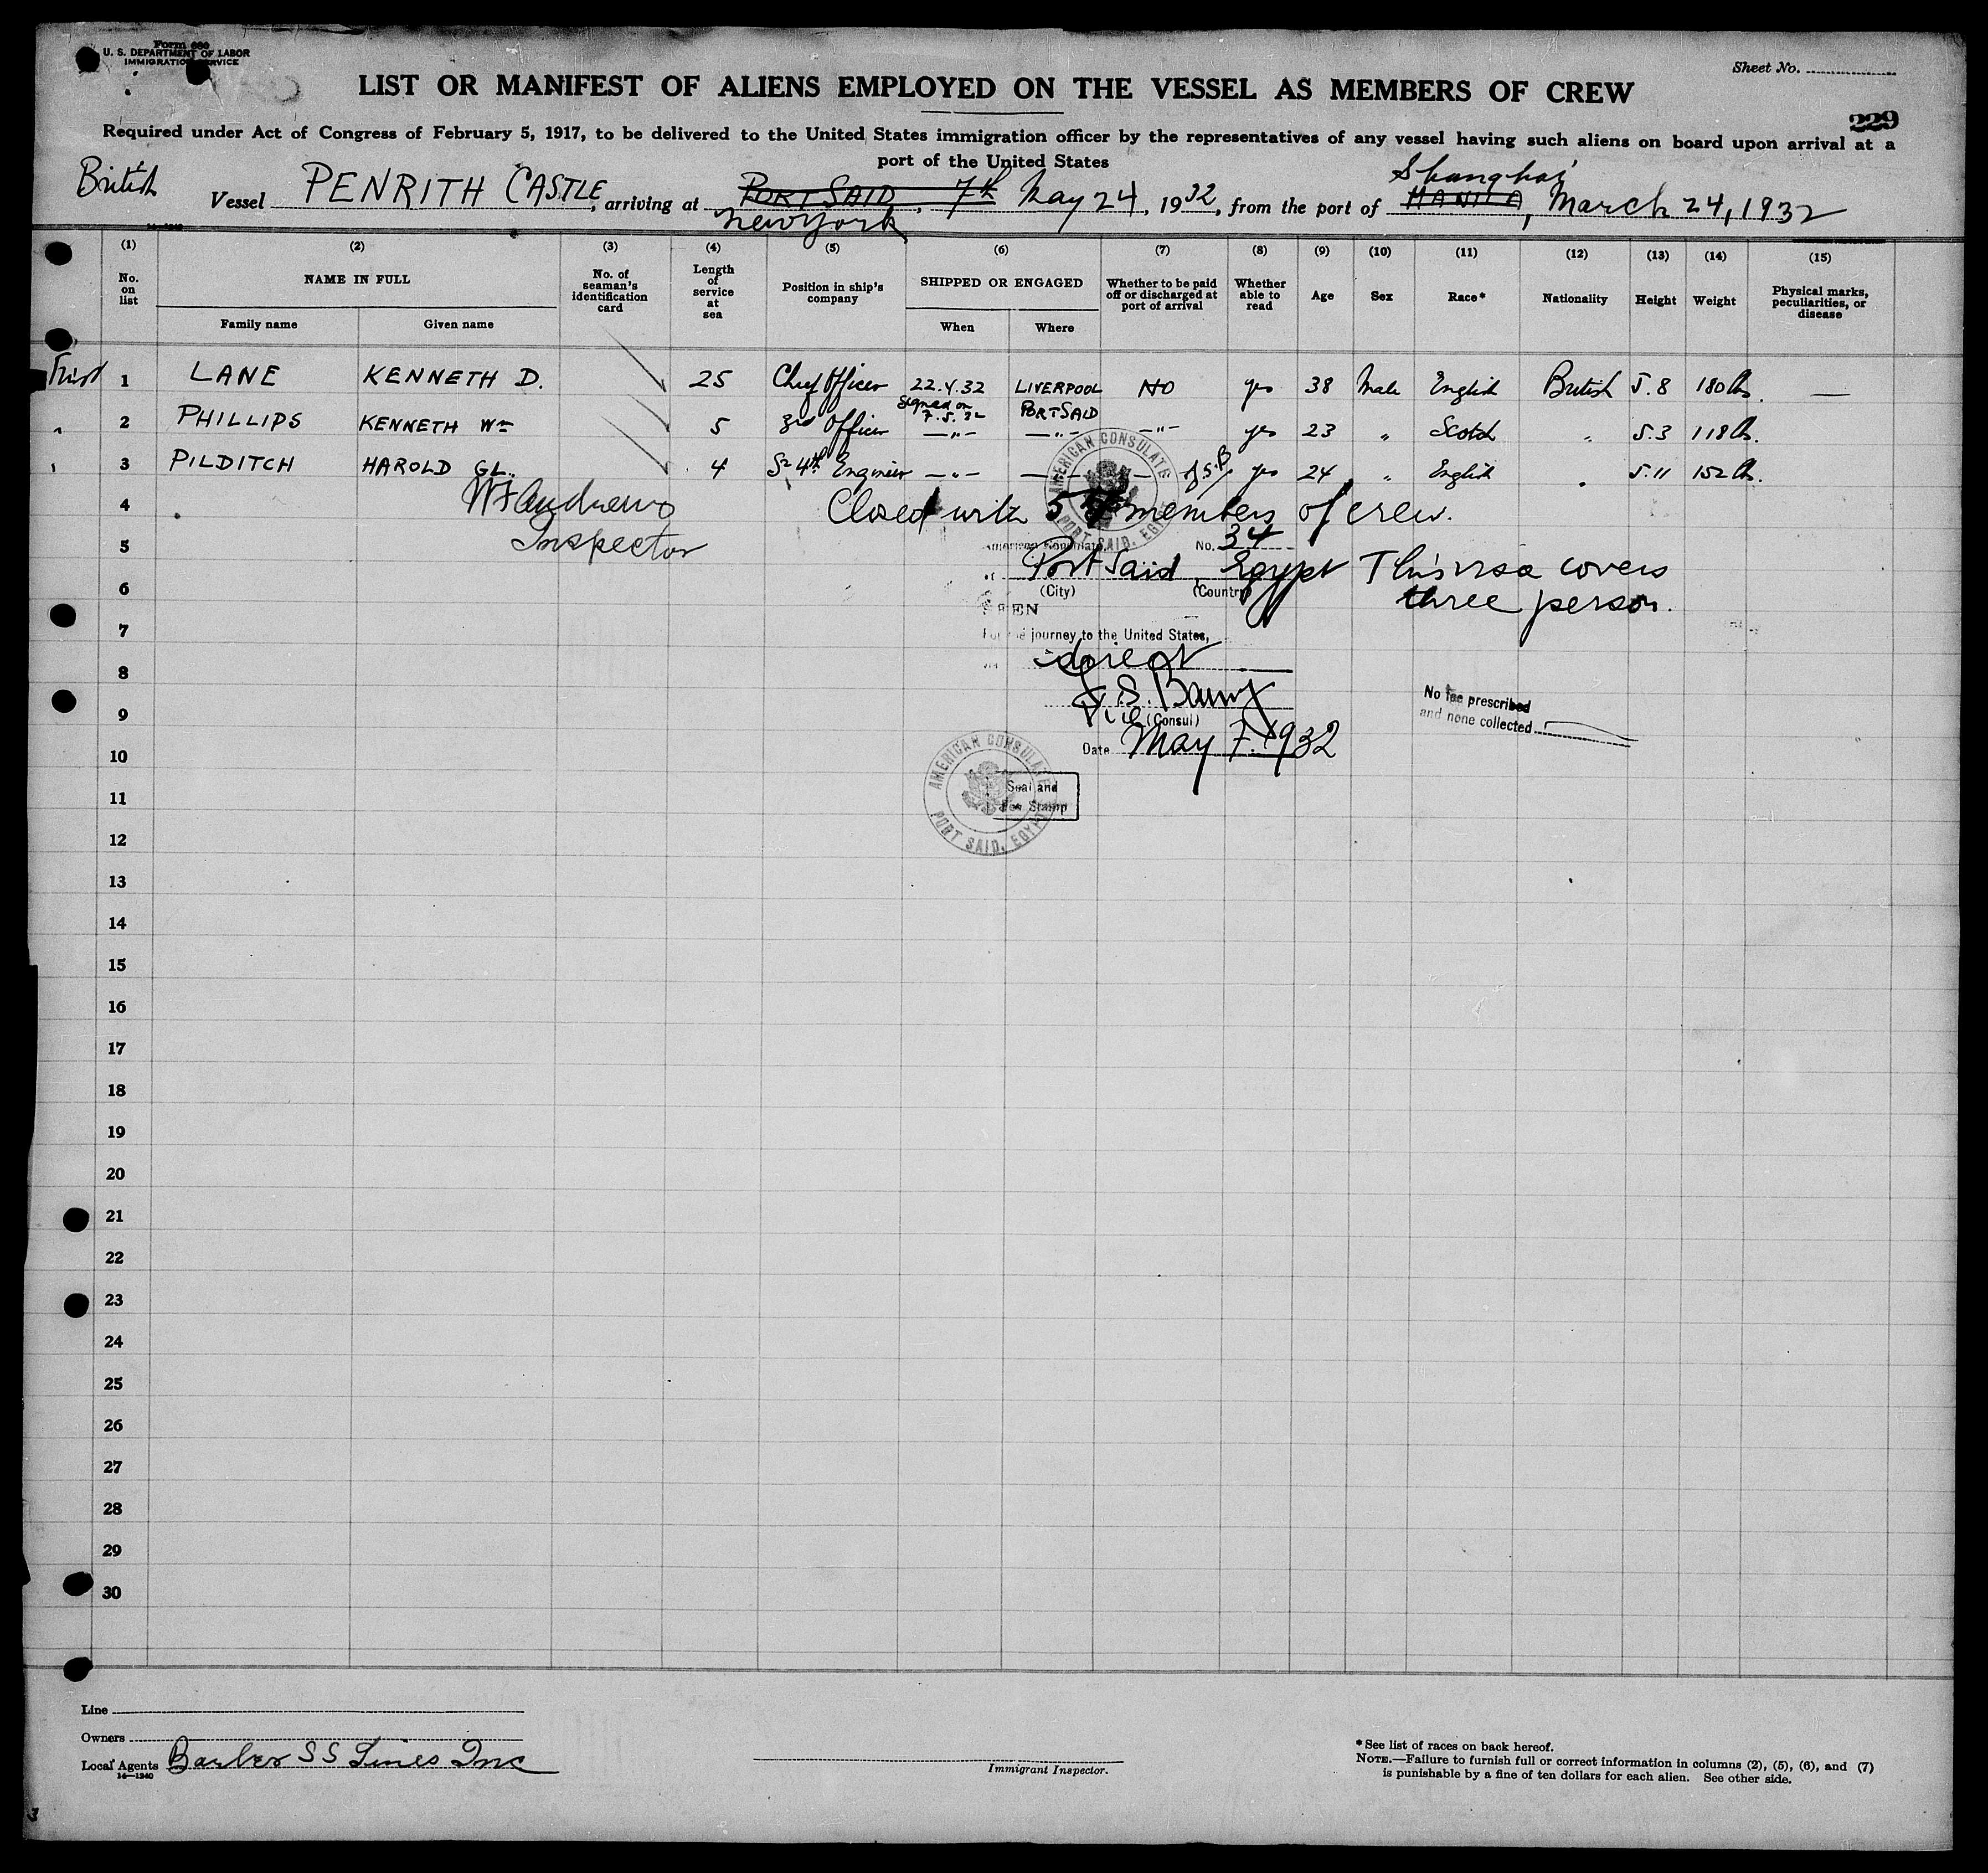 Form 680
U. S. DEPARTMENT OF LABOR
IMMIGRATION SERVICE
Sheet No.
LIST OR MANIFEST OF ALIENS EMPLOYED ON THE VESSEL AS MEMBERS OF CREW
229
Required under Act of Congress of February 5, 1917, to be delivered to the United States immigration officer by the representatives of any vessel having such aliens on board upon arrival at a
port of the United States
British Vessel PENRITH CASTLE, arriving at PORT SAID, 7th May 24, 1932, from the port of MANILA, Shanghai March 24, 1932
New York
(1) (2) (3) (4) (5) (6) (7) (8) (9) (10) (11) (12) (13) (14) (15)
No. on list NAME IN FULL No. of seaman's identification card Length of service at sea Position in ship's company SHIPPED OR ENGAGED Whether to be paid off or discharged at port of arrival Whether able to read Age Sex Race* Nationality Height Weight Physical marks, peculiarities, or disease
Family name Given name When Where
First 1 LANE KENNETH D. 25 Chief Officer 22.4.32 LIVERPOOL NO yes 38 Male English British 5.8 180 lbs. —
signed on 7.5.32 PORT SAID
2 PHILLIPS KENNETH Wm 5 3rd Officer —"— —"— —"— yes 23 " Scotch " 5.3 118 lbs.
3 PILDITCH HAROLD GL. 4 4th Engineer —"— yes 24 " English " 5.11 152 lbs.
4 Closed with members of crew.
W Andrews
Inspector
AMERICAN CONSULATE
PORT SAID, EGYPT
5 American Consulate No. 34
Port Said, Egypt This visa covers
(City) (Country)
6 three person.
SEEN
7 For the journey to the United States,
direct
8
9 Vice (Consul)
No fee prescribed
and none collected
Date May 7, 1932
10
AMERICAN CONSULATE
PORT SAID, EGYPT
Seal and
Fee Stamp
11
12
13
14
15
16
17
18
19
20
21
22
23
24
25
26
27
28
29
30
Line
Owners
Local Agents Barber SS Lines Inc
14—1240
Immigrant Inspector.
*See list of races on back hereof.
NOTE.—Failure to furnish full or correct information in columns (2), (5), (6), and (7)
is punishable by a fine of ten dollars for each alien. See other side.
3